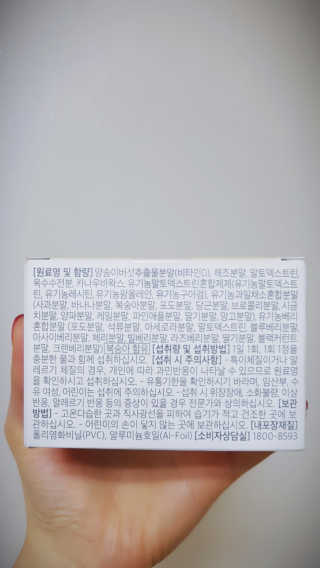 [원료명 및 함량] 양송이버섯추출물분말(비타민D), 해조분말, 말토덱스트린,
옥수수전분, 카나우바왁스, 유기농말토덱스트린혼합제제(유기농말토덱스트
린, 유기농레시틴, 유기농팜올레인, 유기농구아검), 유기농과일채소혼합분말
(사과분말, 바나나분말, 복숭아분말, 포도분말, 당근분말, 브로콜리분말, 시금
치분말, 양파분말, 케일분말, 파인애플분말, 딸기분말, 망고분말), 유기농베리
혼합분말 (포도분말, 석류분말, 아세로라분말, 말토덱스트린, 블루베리분말,
아사이베리분말, 체리분말, 빌베리분말, 라즈베리분말, 딸기분말, 블랙커런트
분말, 크랜베리분말) 복숭아 함유 [섭취량 및 섭취방법] 1일 1회, 1회 1정을
충분한 물과 함께 섭취하십시오. [섭취 시 주의사항] - 특이체질이거나 알
레르기 체질의 경우, 개인에 따라 과민반응이 나타날 수 있으므로 원료명
을 확인하시고 섭취하십시오. - 유통기한을 확인하시기 바라며, 임산부, 수
유 여성, 어린이는 섭취에 주의하십시오. - 섭취 시 위장장애, 소화불량, 이상
반응, 알레르기 반응 등의 증상이 있을 경우 전문가와 상의하십시오. [보관
방법] - 고온다습한 곳과 직사광선을 피하여 습기가 적고 건조한 곳에 보
관하십시오. - 어린이의 손이 닿지 않는 곳에 보관하십시오. [내포장재질]
폴리염화비닐(PVC), 알루미늄호일(Al-Foil) [소비자상담실] 1800-8593